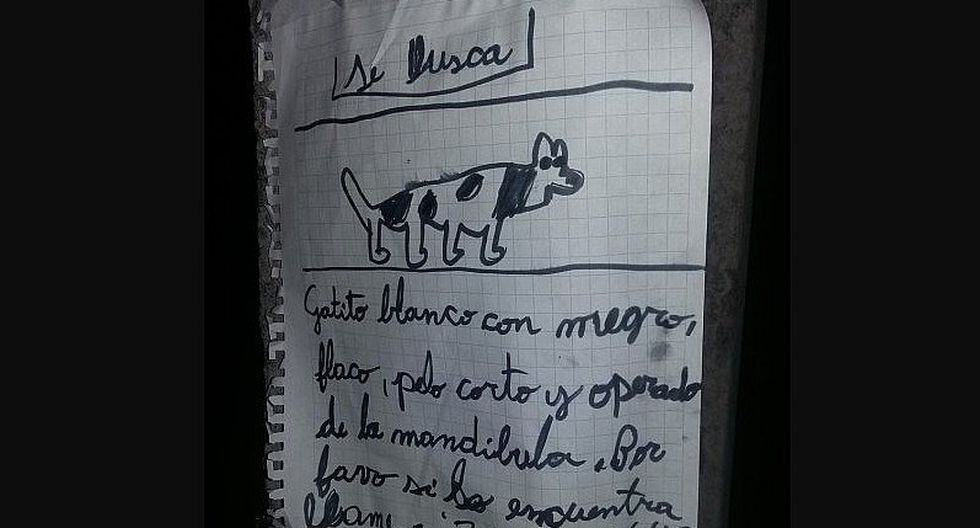 Se Busca
Gatito blanco con negro,
flaco, pelo corto y operado
de la mandibula. Por
favo si lo encuentra